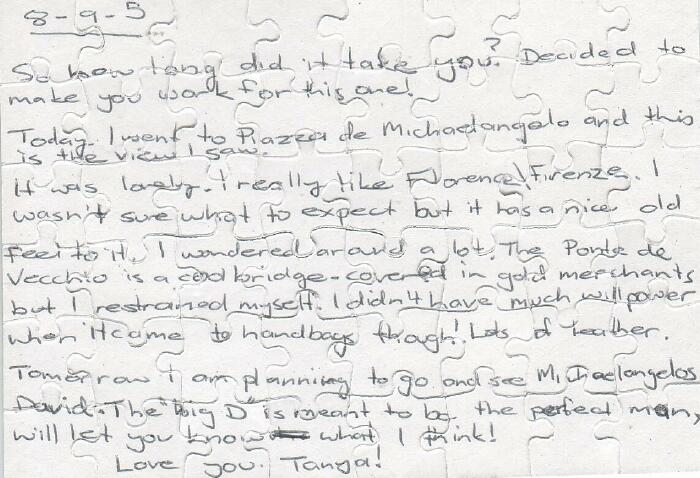 8-9-5
So how long did it take you? Decided to
make you work for this one!
Today I went to Piazza de Michaelangelo and this
is the view I saw.
It was lovely. I really like Florence\Firenze. I
wasn't sure what to expect but it has a nice old
feel to it. I wondered around a lot. The Ponte de
Vecchio is a cool bridge - covered in gold merchants
but I restrained myself. I didn't have much willpower
when it came to handbags though! Lots of leather.
Tomorrow I am planning to go and see Michaelangelos
David. The "big D" is meant to be the perfect man,
will let you know what I think!
Love you. Tanya!